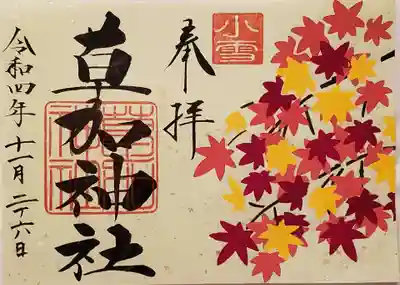 小雪
奉拝
草加神社
令和四年十一月二十六日